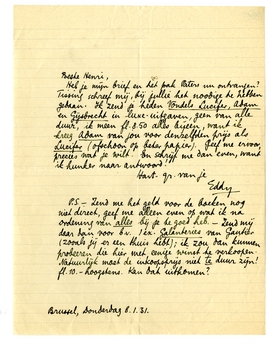 Beste Henri,
Heb je mijn brief en het pak Waters nu ontvangen?
schreef mij, bij jullie het noodige te hebben
gedaan. Ik zend je heden Vondels Lucifer, Adam
en Gijsbrecht in luxe-uitgaven, geen van alle
duur, ik meen fl. 8.50 alles bijeen, want ik
kreeg Adam van jou voor denzelfden prijs als
Lucifer (ofschoon op beter papier). Geef me ervoor,
precies wat je wilt. En schrijf me dan even, want
ik hunker naar antwoord!
Hart. gr. van je
Eddy
P.S. — Zend me het geld voor de boeken nog
niet direct, geef me alleen even op wat ik na
ordening van alles bij je te goed heb. — Zend mij
dan voor b.v. 1 ex. Galanteries van
(zooals jij er een thuis hebt); ik zou dan kunnen
probeeren die hier met eenige winst te verkoopen.
Natuurlijk moet de inkoopsprijs niet te duur zijn!
fl. 10.- hoogstens. Kan dat uitkomen?
Brussel, Donderdag 8.1.31.